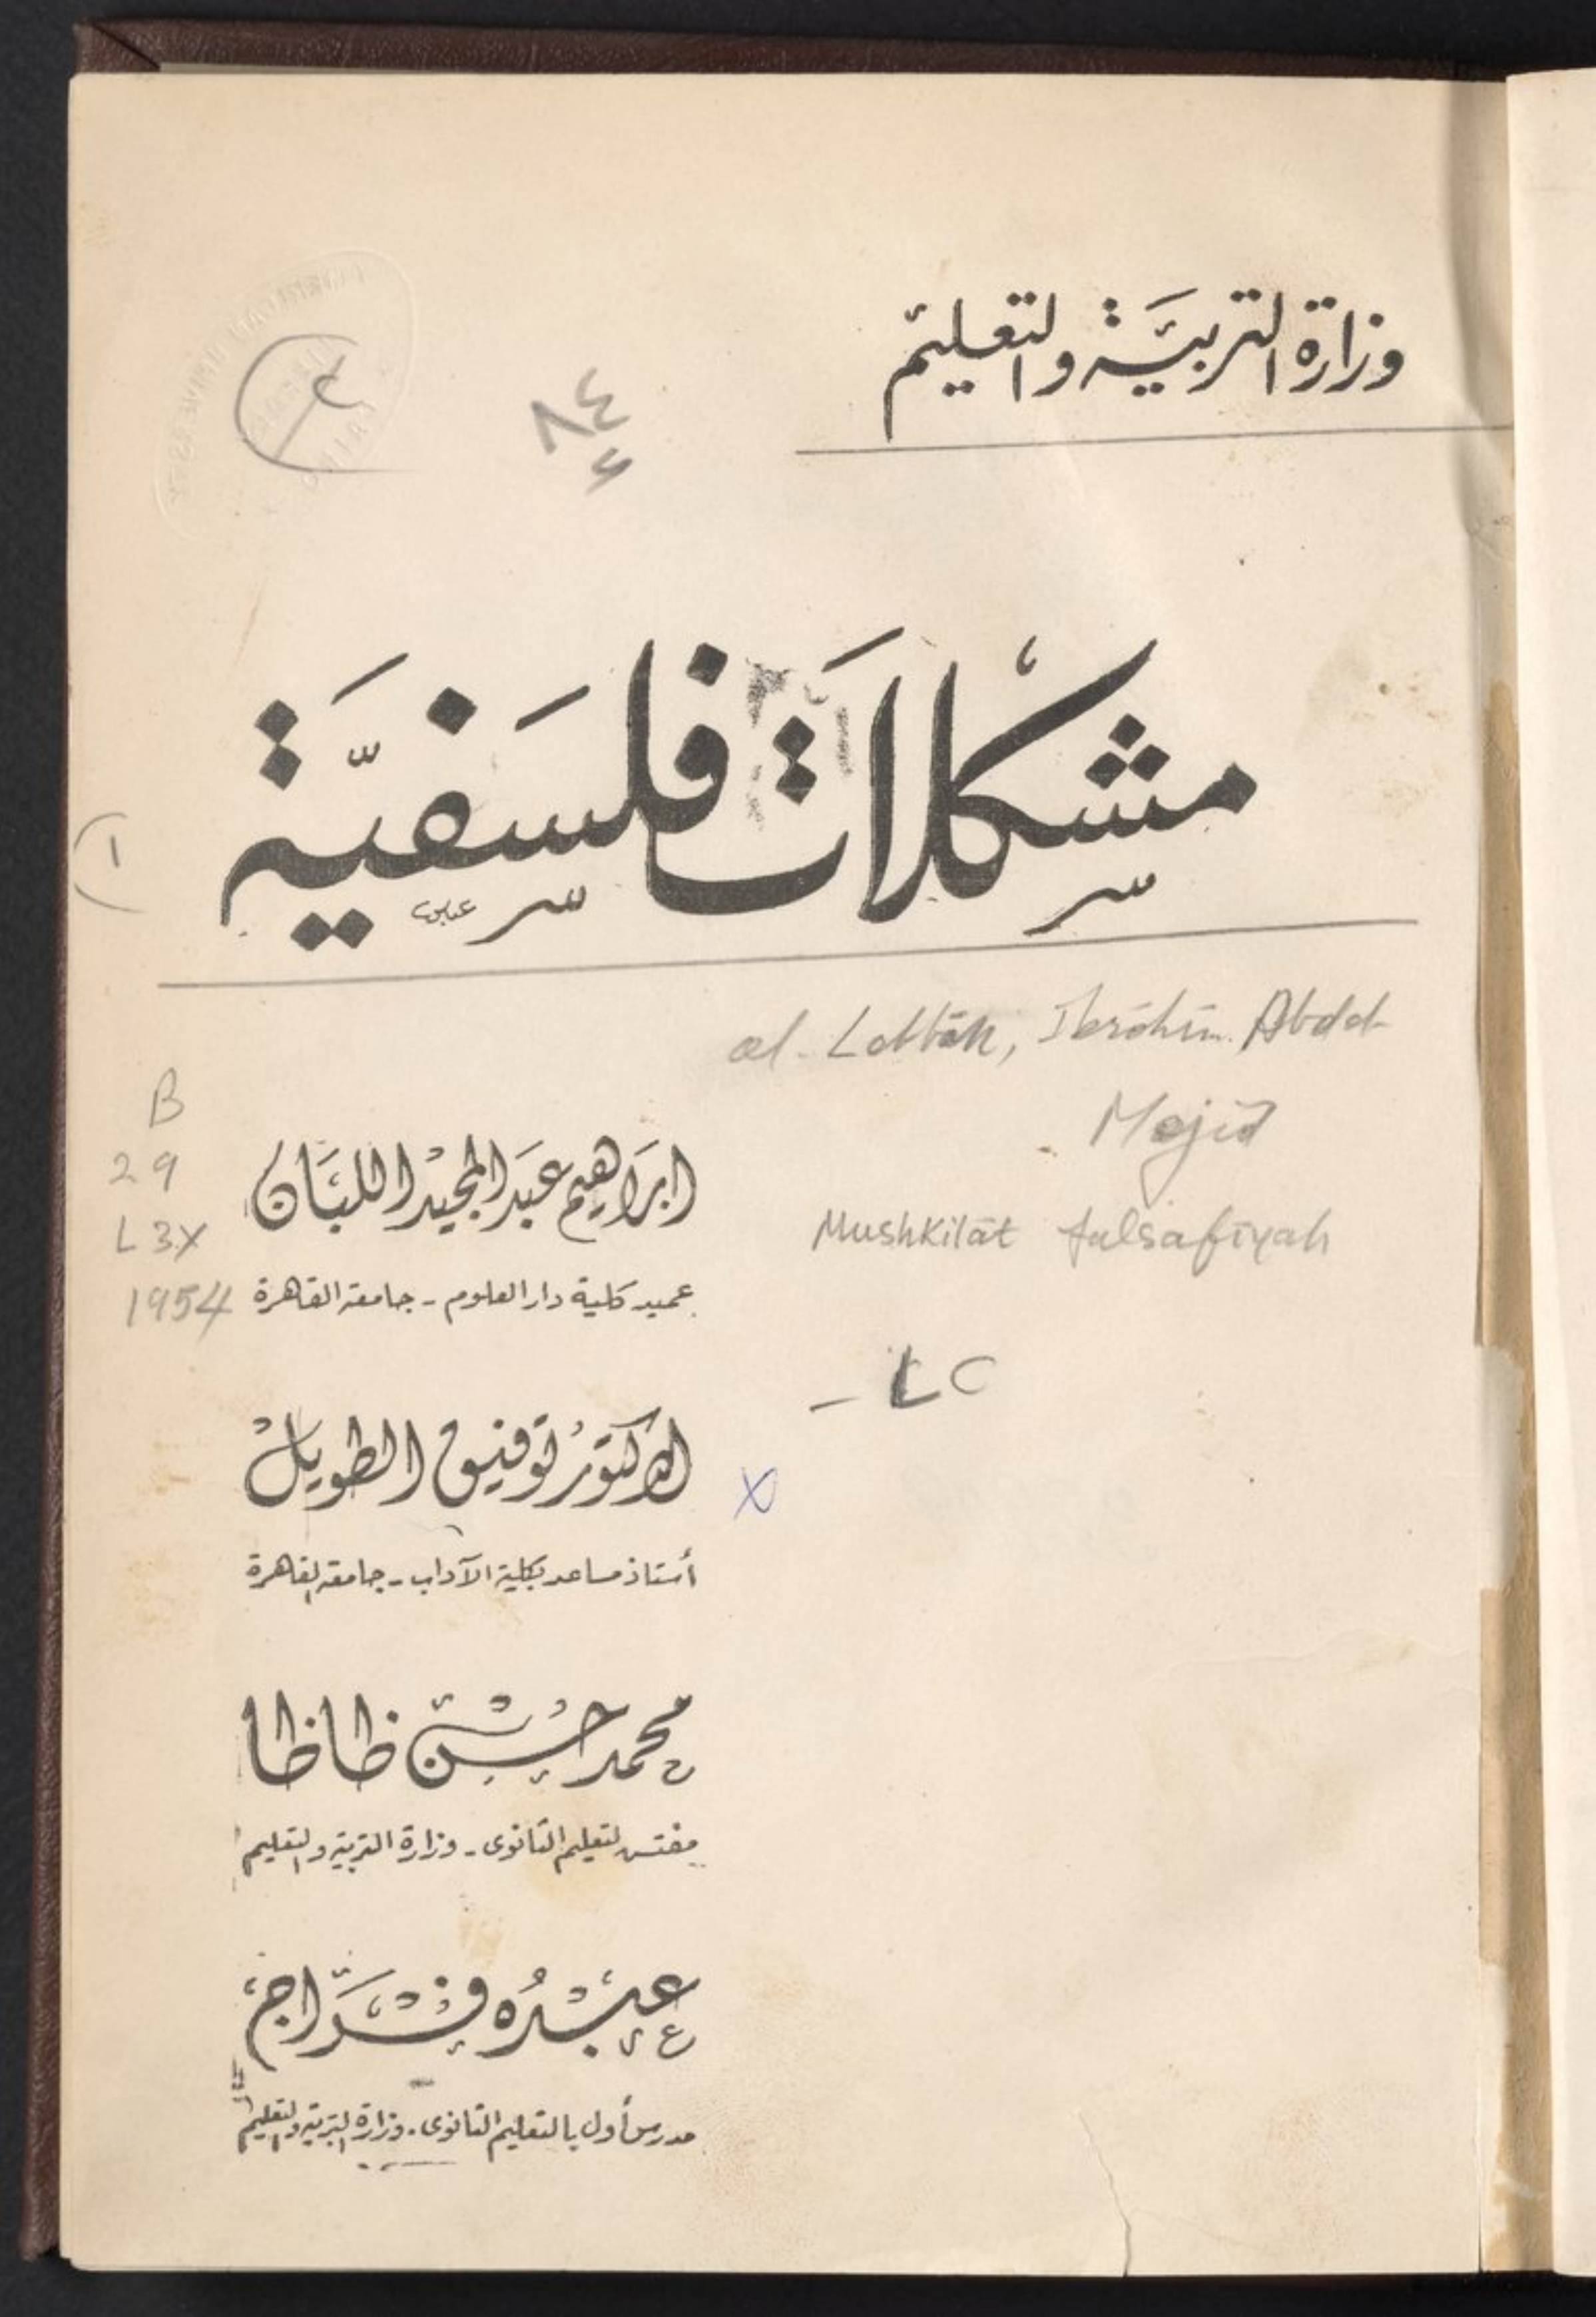 وزارة التربية والتعليم
٨٤
٤
مشكلات فلسفية
١
al-Labbān, Ibrāhīm Abd al-
Majīd
B
29
L3X
1954
ابراهيم عبد المجيد اللبان
Mushkilāt falsafīyah
عميد كلية دار العلوم - جامعة القاهرة
- LC
الدكتور توفيق الطويل
X
أستاذ مساعد بكلية الآداب - جامعة القاهرة
محمد حسن ظاظا
مفتش التعليم الثانوى - وزارة التربية والتعليم
عبده فراج
مدرس أول بالتعليم الثانوى - وزارة التربية والتعليم